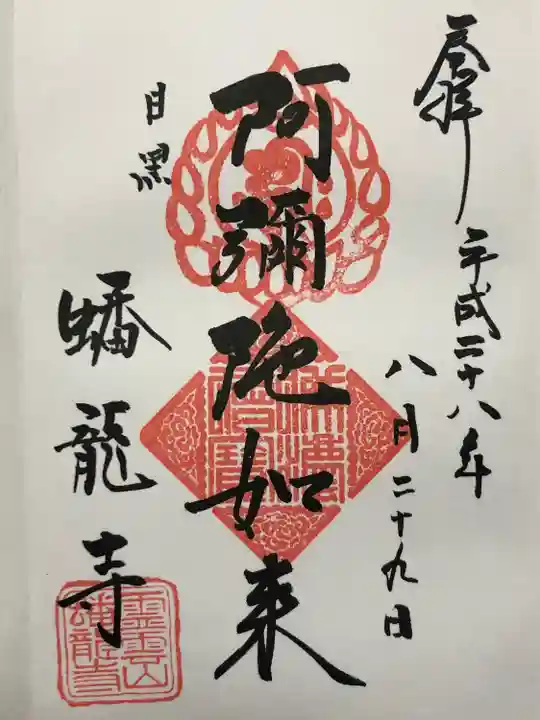 奉拝
平成二十八年
八月二十九日
阿彌陀如来
目黒
蟠龍寺
霊雲山
蟠龍寺
佛法僧寶